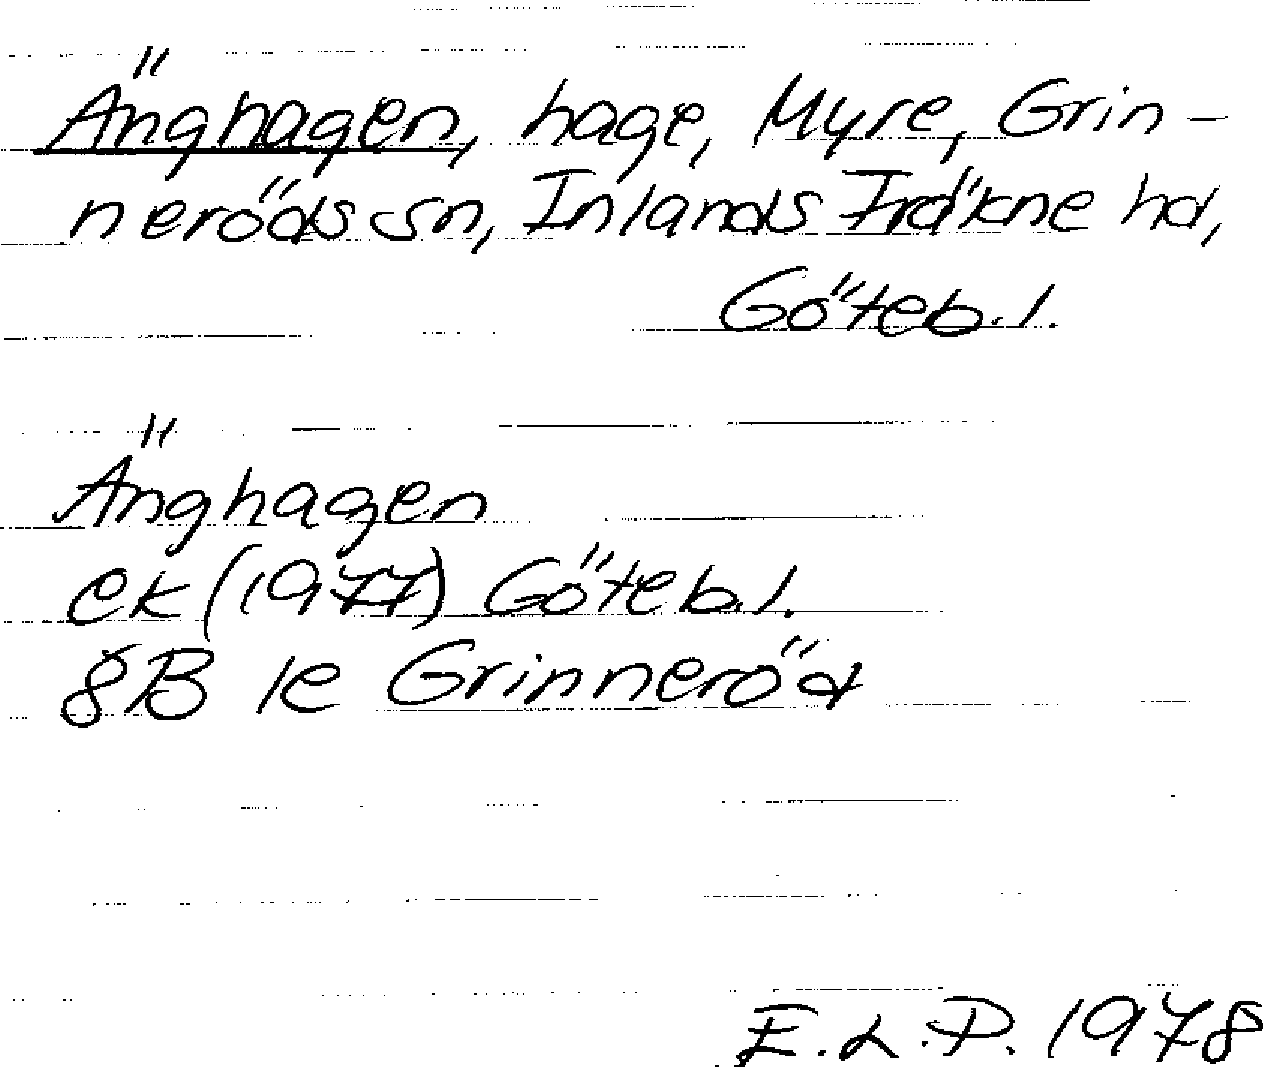 Änghagen, hage, Myre, Grin-
neröds sn, Inlands Fräkne hd,
Göteb. l.
Änghagen
ek (1977) Göteb. l.
8B 1e Grinneröd
E.L.P. 1978